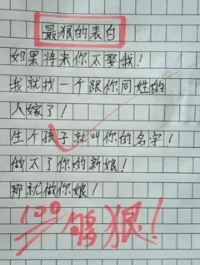 最狠的表白
如果将来你不娶我！
我就找一个跟你同姓的
人嫁了！
生个孩子就叫你的名字！
做不了你的新娘！
那就做你娘！
100 够狠！